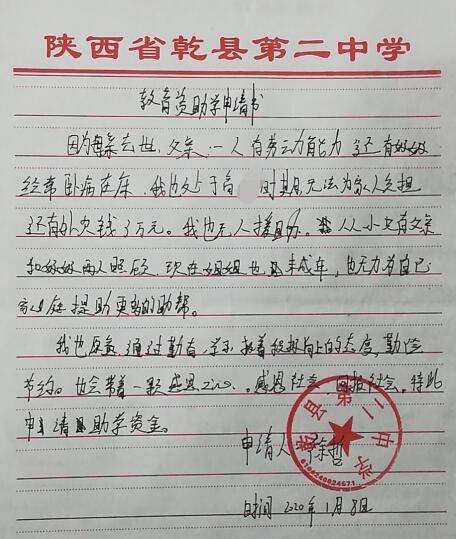 陕西省乾县第二中学
教育资助学申请书
因为母亲去世，父亲一人有劳动能力，还有奶奶
经常卧病在床，我也处于高 时期，无法为家人负担
还有外欠钱3万元。我也无人援助。 从小只有父亲
和奶奶两人照顾，现在姐姐也 未成年，也无力为自己
家庭提助更多的助帮。
我也愿意通过勤奋，学习抱着积极向上的态度，勤俭
节约。也会带着一颗感恩之心。感恩社会，回报社会。特此
申请 助学资金。
申请人 徐哲
乾县第二中学
6104240024571
时间 2020年1月8日